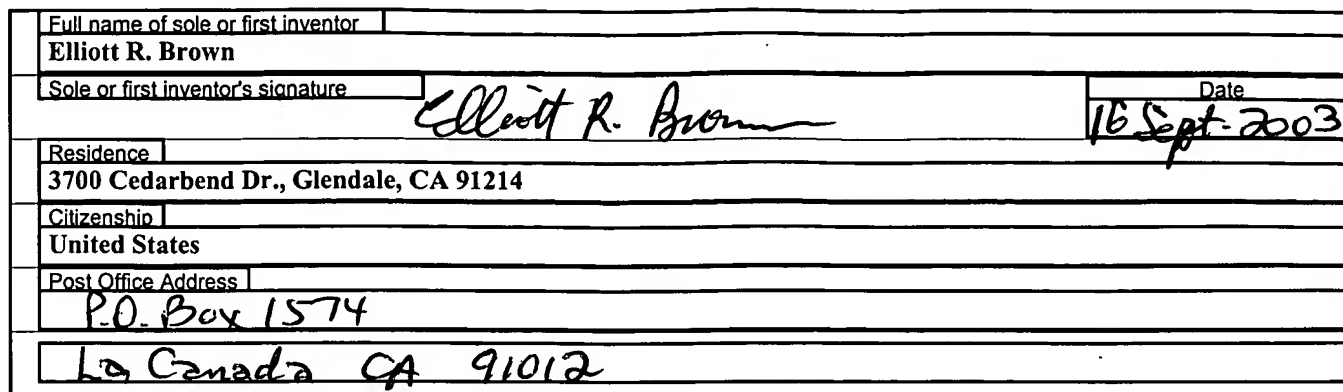 Full name of sole or first inventor
Elliott R. Brown
Sole or first inventor's signature
Elliott R. Brown
Date
16 Sept. 2003
Residence
3700 Cedarbend Dr., Glendale, CA 91214
Citizenship
United States
Post Office Address
P.O. Box 1574
La Canada CA 91012